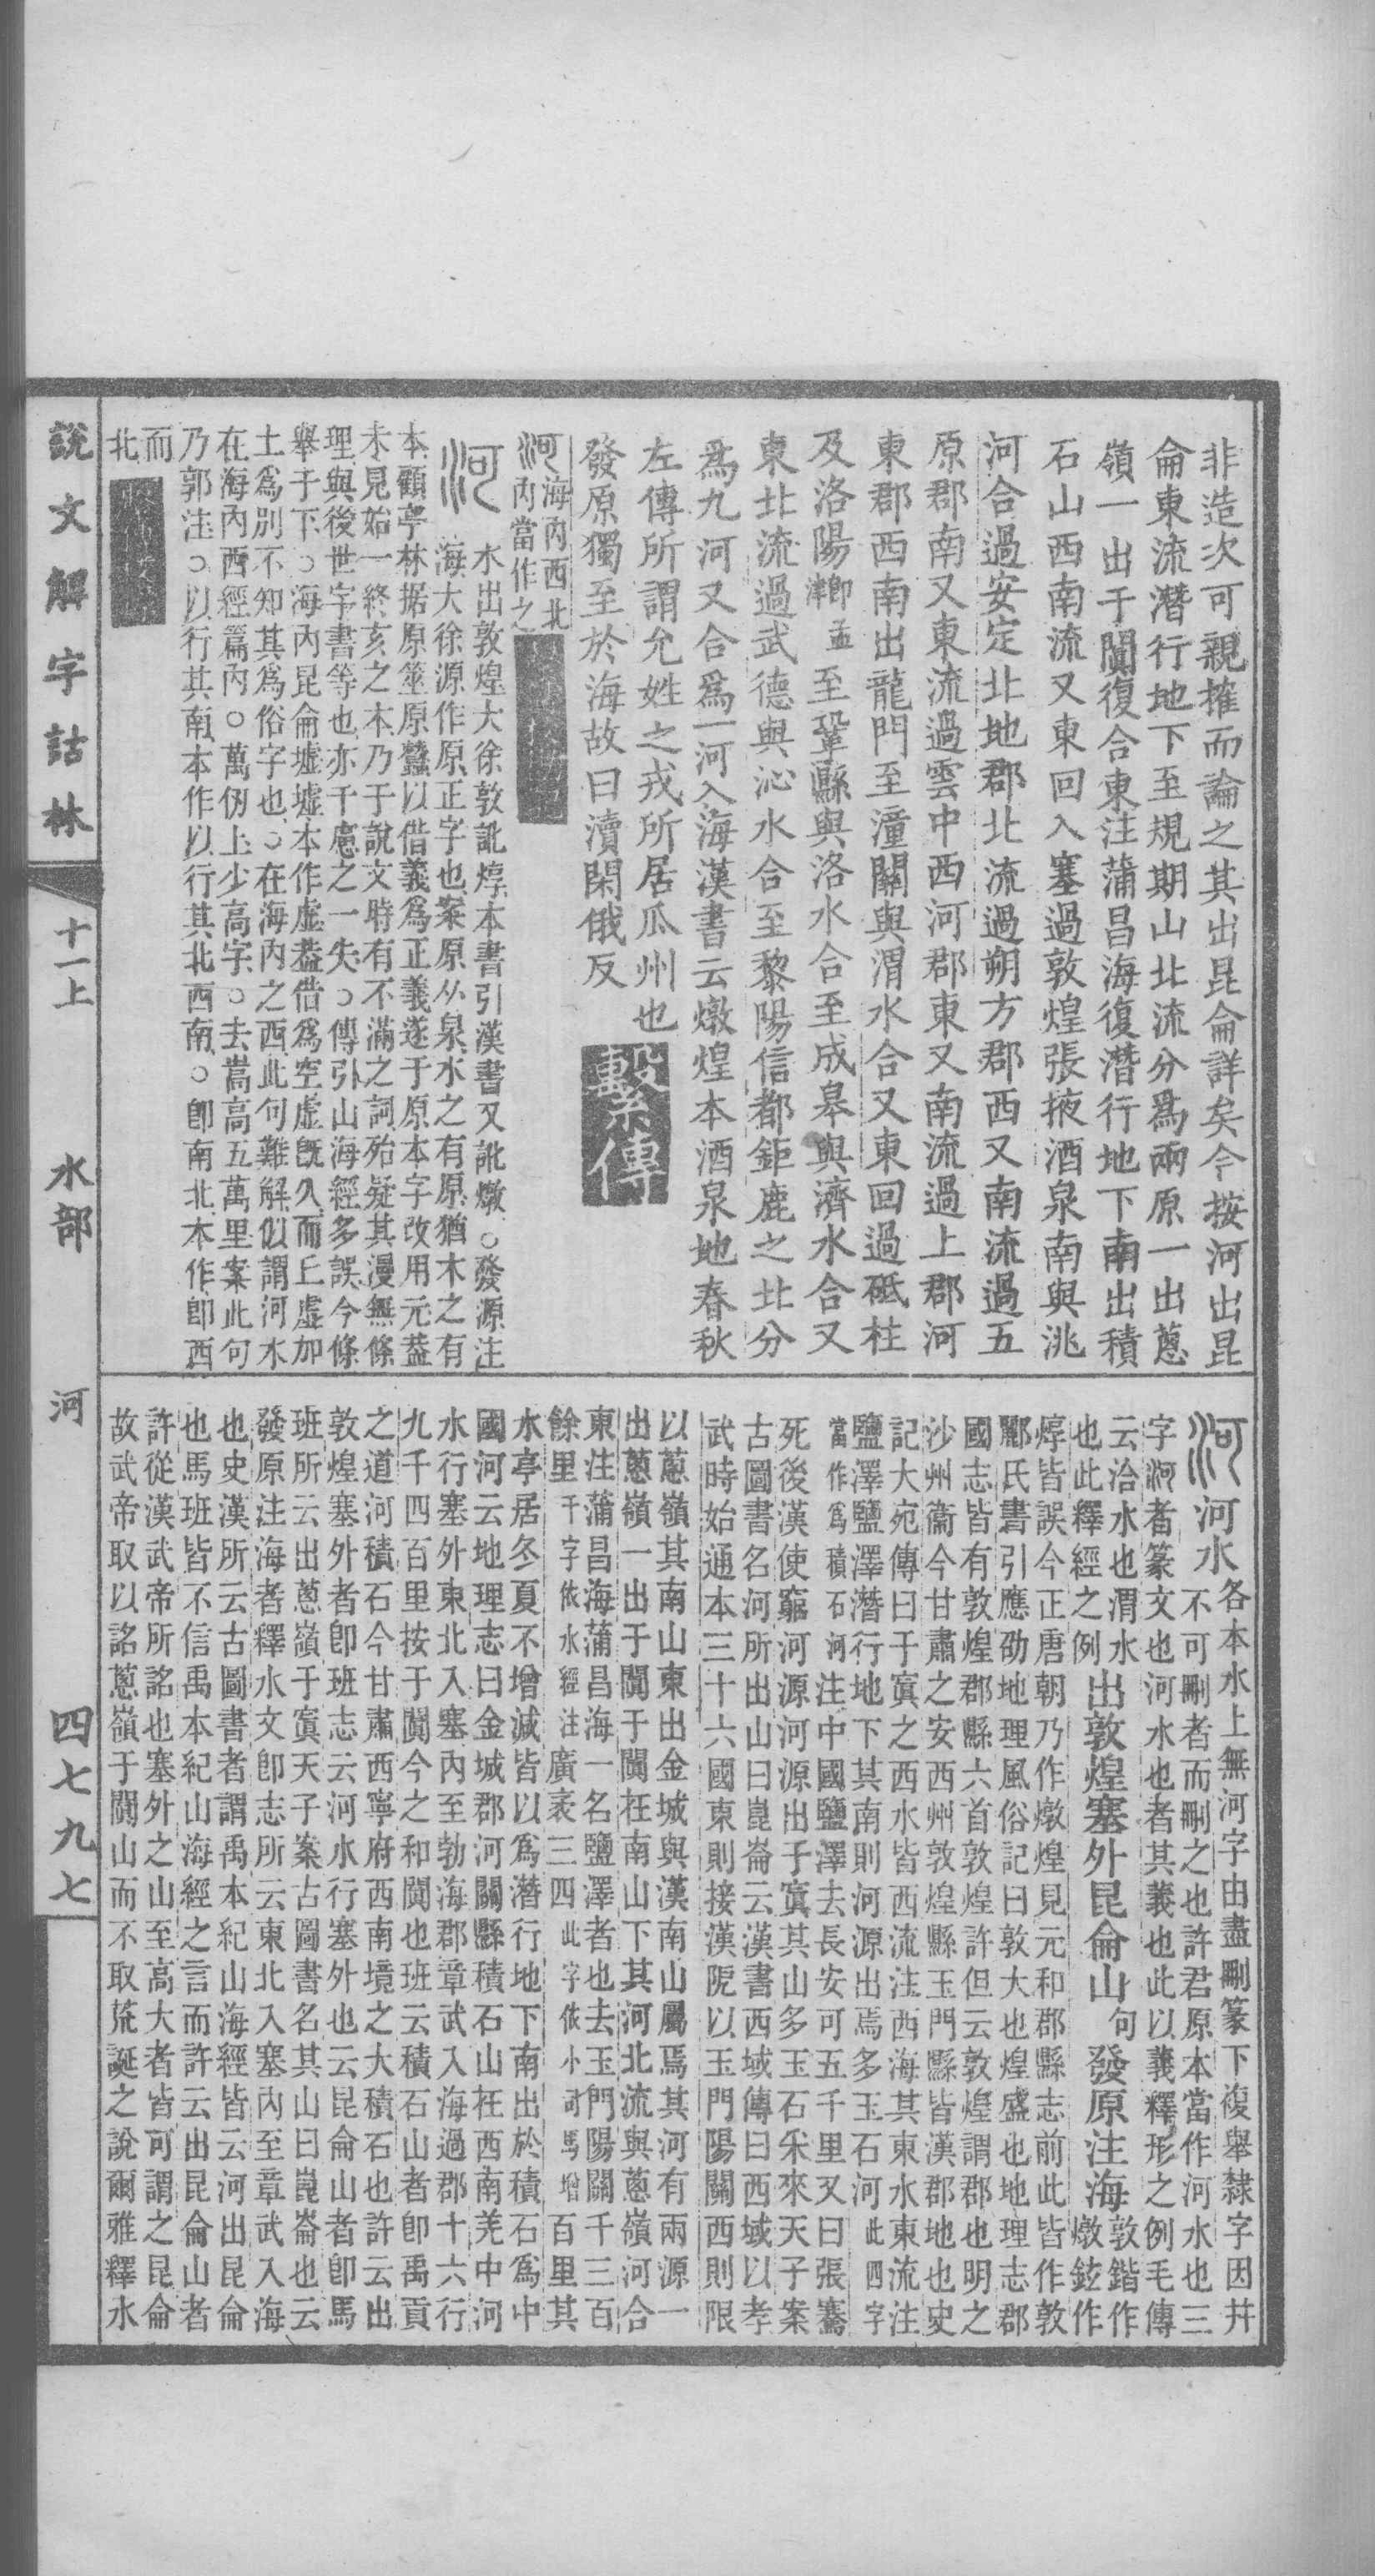 非造次可親搉而論之其出昆侖詳矣今按河出昆
侖東流潛行地下至規期山北流分爲兩原一出蔥
嶺一出于闐復合東注蒲昌海復潛行地下南出積
石山西南流又東回入塞過敦煌張掖酒泉南與洮
河合過安定北地郡北流過朔方郡西又南流過五
原郡南又東流過雲中西河郡東又南流過上郡河
東郡西南出龍門至潼關與渭水合又東回過砥柱
及洛陽卽孟津至鞏縣與洛水合至成皋與濟水合又
東北流過武德與沁水合至黎陽信都鉅鹿之北分
爲九河又合爲一河入海漢書云燉煌本酒泉地春秋
左傳所謂允姓之戎所居瓜州也
發原獨至於海故曰瀆閑俄反
繫傳
河海內西北
內當作之
河 水出敦煌大徐敦訛焞本書引漢書又訛燉○發源注
海大徐源作原正字也案原从泉水之有原猶木之有
本顧亭林据原筮原蠶以借義爲正義遂于原本字改用元葢
未見始一終亥之本乃于說文時有不滿之詞殆疑其漫無條
理與後世字書等也亦千慮之一失○傳引山海經多誤今條
舉于下○海內昆侖墟墟本作虛葢借爲空虛旣久而丘虛加
土爲別不知其爲俗字也○在海內之西此句難解似謂河水
在海內西經篇內○萬仞上少高字○去嵩高五萬里案此句
乃郭注○以行其南本作以行其北西南○卽南北本作卽西
而
北
河河水各本水上無河字由盡刪篆下複舉隸字因幷
不可刪者而刪之也許君原本當作河水也三
字河者篆文也河水也者其義也此以義釋形之例毛傳
云洽水也渭水
也此釋經之例出敦煌塞外昆侖山句發原注海敦鍇作
燉鉉作
焞皆誤今正唐朝乃作燉煌見元和郡縣志前此皆作敦
酈氏書引應劭地理風俗記曰敦大也煌盛也地理志郡
國志皆有敦煌郡縣六首敦煌許但云敦煌謂郡也明之
沙州衞今甘肅之安西州敦煌縣玉門縣皆漢郡地也史
記大宛傳曰于窴之西水皆西流注西海其東水東流注
鹽澤鹽澤潛行地下其南則河源出焉多玉石河此四字
當作爲積石河注中國鹽澤去長安可五千里又曰張騫
死後漢使窮河源河源出于窴其山多玉石釆來天子案
古圖書名河所出山曰崑崙云漢書西域傳曰西域以孝
武時始通本三十六國東則接漢阸以玉門陽關西則限
以蔥嶺其南山東出金城與漢南山屬焉其河有兩源一
出蔥嶺一出于闐于闐在南山下其河北流與蔥嶺河合
東注蒲昌海蒲昌海一名鹽澤者也去玉門陽關千三百
餘里千字依水經注廣袤三四此字依小司馬增百里其
水亭居冬夏不增減皆以爲潛行地下南出於積石爲中
國河云地理志曰金城郡河關縣積石山在西南羌中河
水行塞外東北入塞內至勃海郡章武入海過郡十六行
九千四百里按于闐今之和闐也班云積石山者卽禹貢
之道河積石今甘肅西寧府西南境之大積石也許云出
敦煌塞外者卽班志云河水行塞外也云昆侖山者卽馬
班所云出蔥嶺于窴天子案古圖書名其山曰崑崙也云
發原注海者釋水文卽志所云東北入塞內至章武入海
也史漢所云古圖書者謂禹本紀山海經皆云河出昆侖
也馬班皆不信禹本紀山海經之言而許云出昆侖山者
許從漢武帝所詺也塞外之山至高大者皆可謂之昆侖
故武帝取以詺蔥嶺于闐山而不取荒誕之說爾雅釋水
說文解字詁林 十一上 水部 河 四七九七